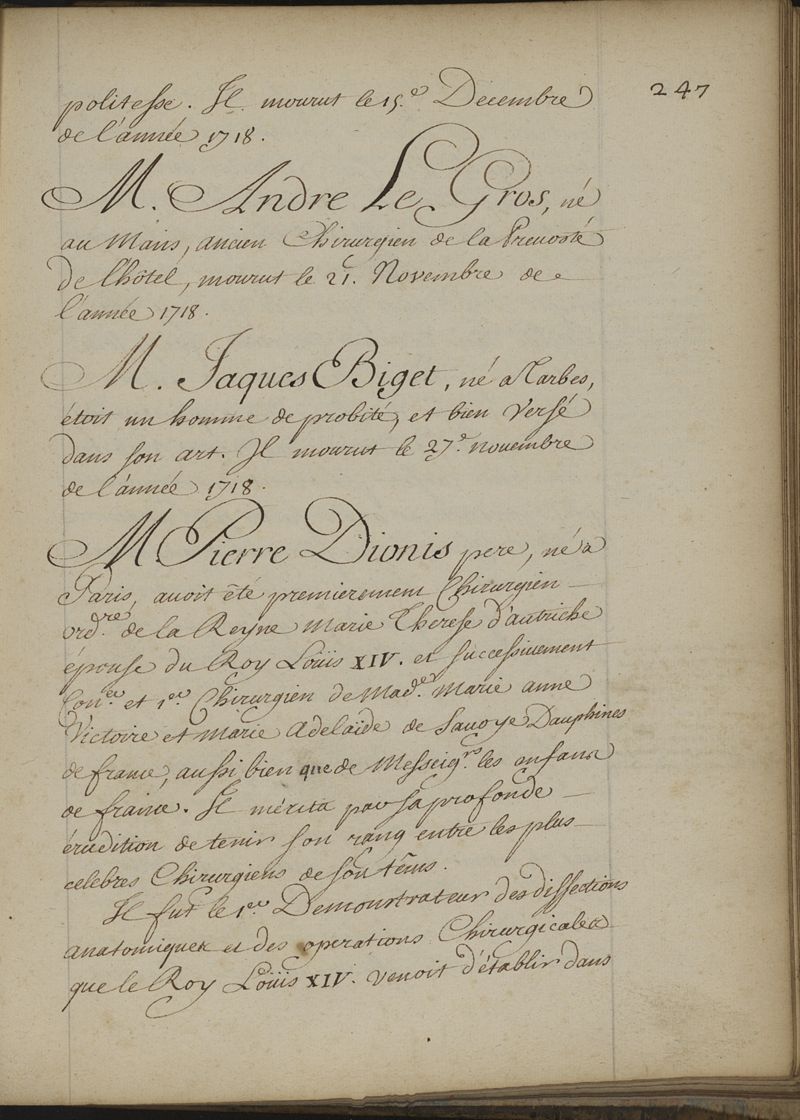 247
politesse. Il mourut le 15.e Decembre
de l'année 1718.
M. Andre Le Gros, né
au Mans, ancien Chirurgien de la Prevosté
de l'hôtel, mourut le 21. Novembre de
l'année 1718.
M. Jaques Biget, né a Tarbes,
étoit un homme de probité, et bien versé
dans son art. Il mourut le 27.e novembre
de l'année 1718.
M. Pierre Dionis pere, né a
Paris, avoit été premierement Chirurgien
ord.re de la Reyne Marie Therese d'autriche
épouse du Roy Loüis XIV. et successivement
Con.er et 1.er Chirurgien de Mad.e Marie anne
Victoire et Marie Adelaïde de Savoye Dauphines
de france, aussi bien que de Messeig.rs les enfans
de france. Il mérita par sa profonde
érudition de tenir son rang entre les plus
celebres Chirurgiens de son têms.
Il fut le 1.er Demonstrateur des dissections
anatomiques et des operations Chirurgicales
que le Roy Loüis XIV. venoit d'établir dans